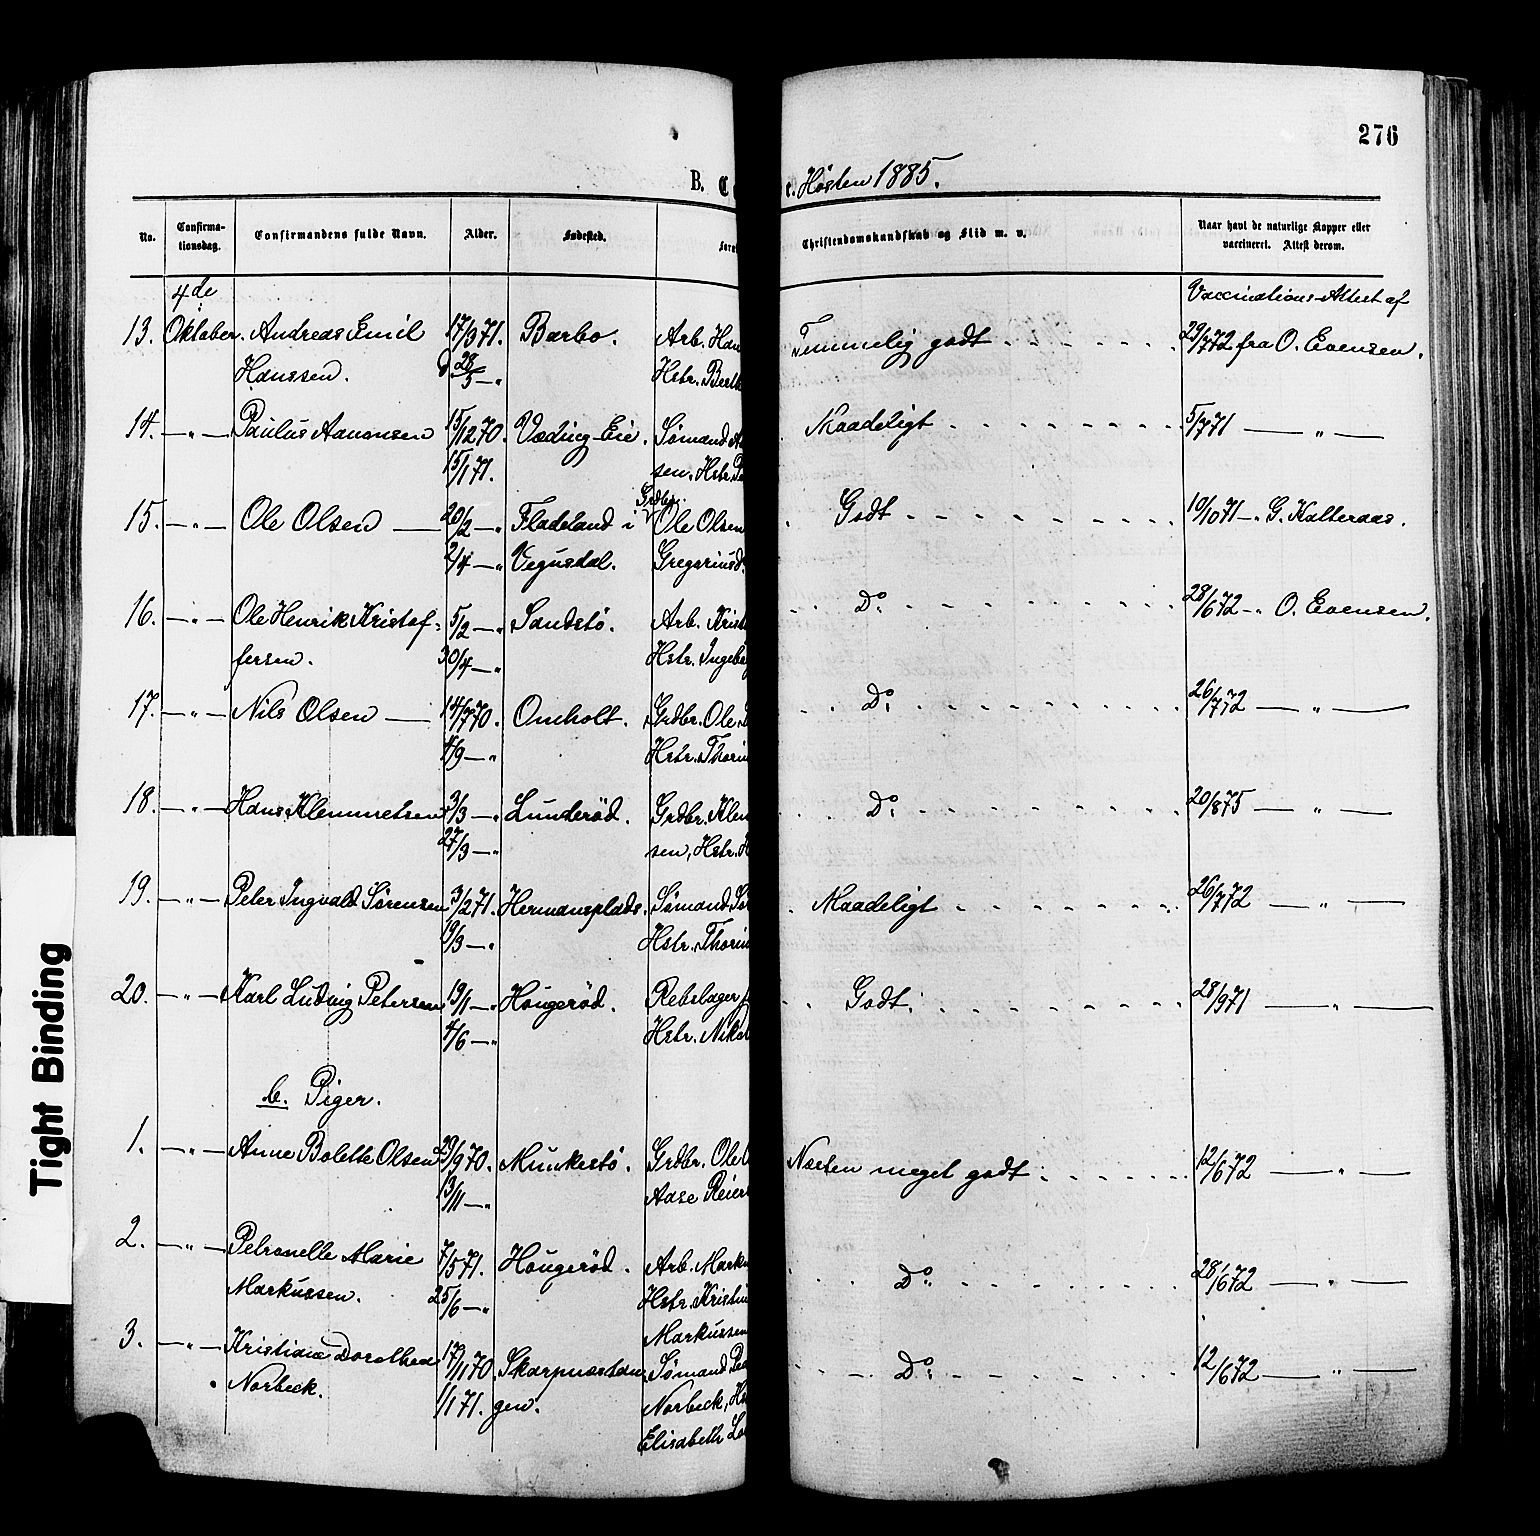 276
B. C
r. Høsten 1885.
No. Confirma-
tionsdag. Confirmandens fulde Navn. Alder. Fødested. Foræl Christendomskundskab og Flid m. v. Naar havt de naturlige Kopper eller
vaccineret. Attest derom.
4de Vaccinations-Attest af
13. Oktober. Andreas Emil 17/3 71. Barbo. Arb. Han Temmelig godt 29/7 72 fra O. Evensen.
Hanssen. d 28/5 —„ Hstr. Berth
14. —„— Paulus Aanonsen 15/12 70. Væding Eie. Sømand Maadeligt 5/7 71 —„—
15/1 71. sen. Hstr.
15. —„— Ole Olsen — 20/2 —„ Fladeland i Grdbr. Ole Olsen Godt 10/10 71 —„ G. Kalteraas.
2/4 —„ Vegusdal. Gregoriusd.
16. —„— Ole Henrik Kristof- 5/2 —„ Sandstø. Arb. Krist Do. 28/6 72 —„ O. Evensen.
fersen. 30/4 —„ Hstr. Ingeb
17. —„— Nils Olsen — 14/7 70. Omholt. Grdbr. Ole Do. 26/7 72 —„—
4/9 —„ Hstr. Thorin
18. —„— Hans Klemmetsen 3/3 —„ Lunderød. Grdbr. Klem Do. 20/8 75 —„—
27/3 —„ sen, Hstr. H
19. —„— Peter Ingvald Sørensen 3/2 71. Hermansplads. Sømand Sø Maadeligt 26/7 72 —„—
19/3 —„ Hstr. Thorin
20. —„— Karl Ludvig Petersen 19/1 —„ Hougerød. Rebslager Godt 28/9 71 —„—
4/6 —„ Hstr. Nikol
b. Piger.
1. —„— Anne Bolette Olsen 29/9 70. Munkestø. Grdbr. Ole Næsten meget godt 12/6 72 —„—
13/11 —„ Aase Reier
2. —„— Petronelle Marie 7/5 71. Hougerød. Arb. Marku Do. 28/6 72 —„—
Markussen. 25/6 —„ Hstr. Kristin
Markussen
3. —„— Kristiane Dorothea 17/11 70. Skarpnæstan- Sømand Do. 12/6 72 —„—
Norbeck. 1/1 71. gen. Norbeck, H
Elisabeth
Tight Binding